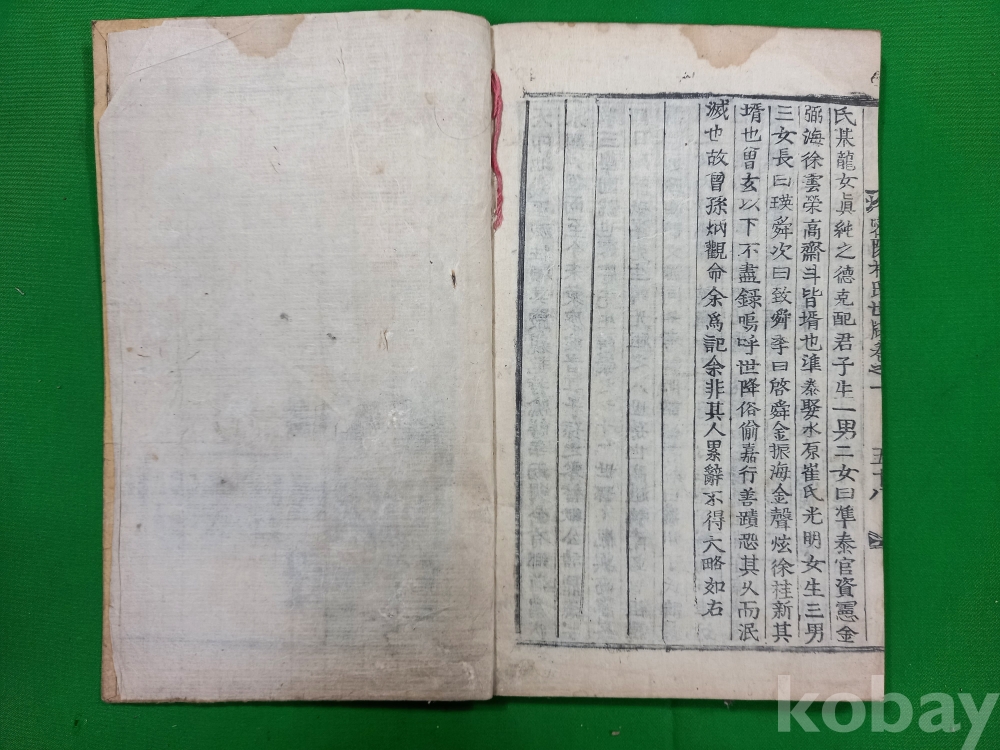 氏某龍女眞純之德克配君子生一男二女曰準泰官資憲金
弼海徐雲榮高齋斗皆壻也準泰娶水原崔氏光明女生三男
三女長曰瑛舜次曰致舜季曰啓舜金振海金聲炫徐桂新其
壻也曾玄以下不盡錄嗚呼世降俗偷嘉行善蹟恐其久而泯
滅也故曾孫炳觀命余爲記余非其人累辭不得大略如右
密陽朴氏世牒卷之一 五十八
kobay